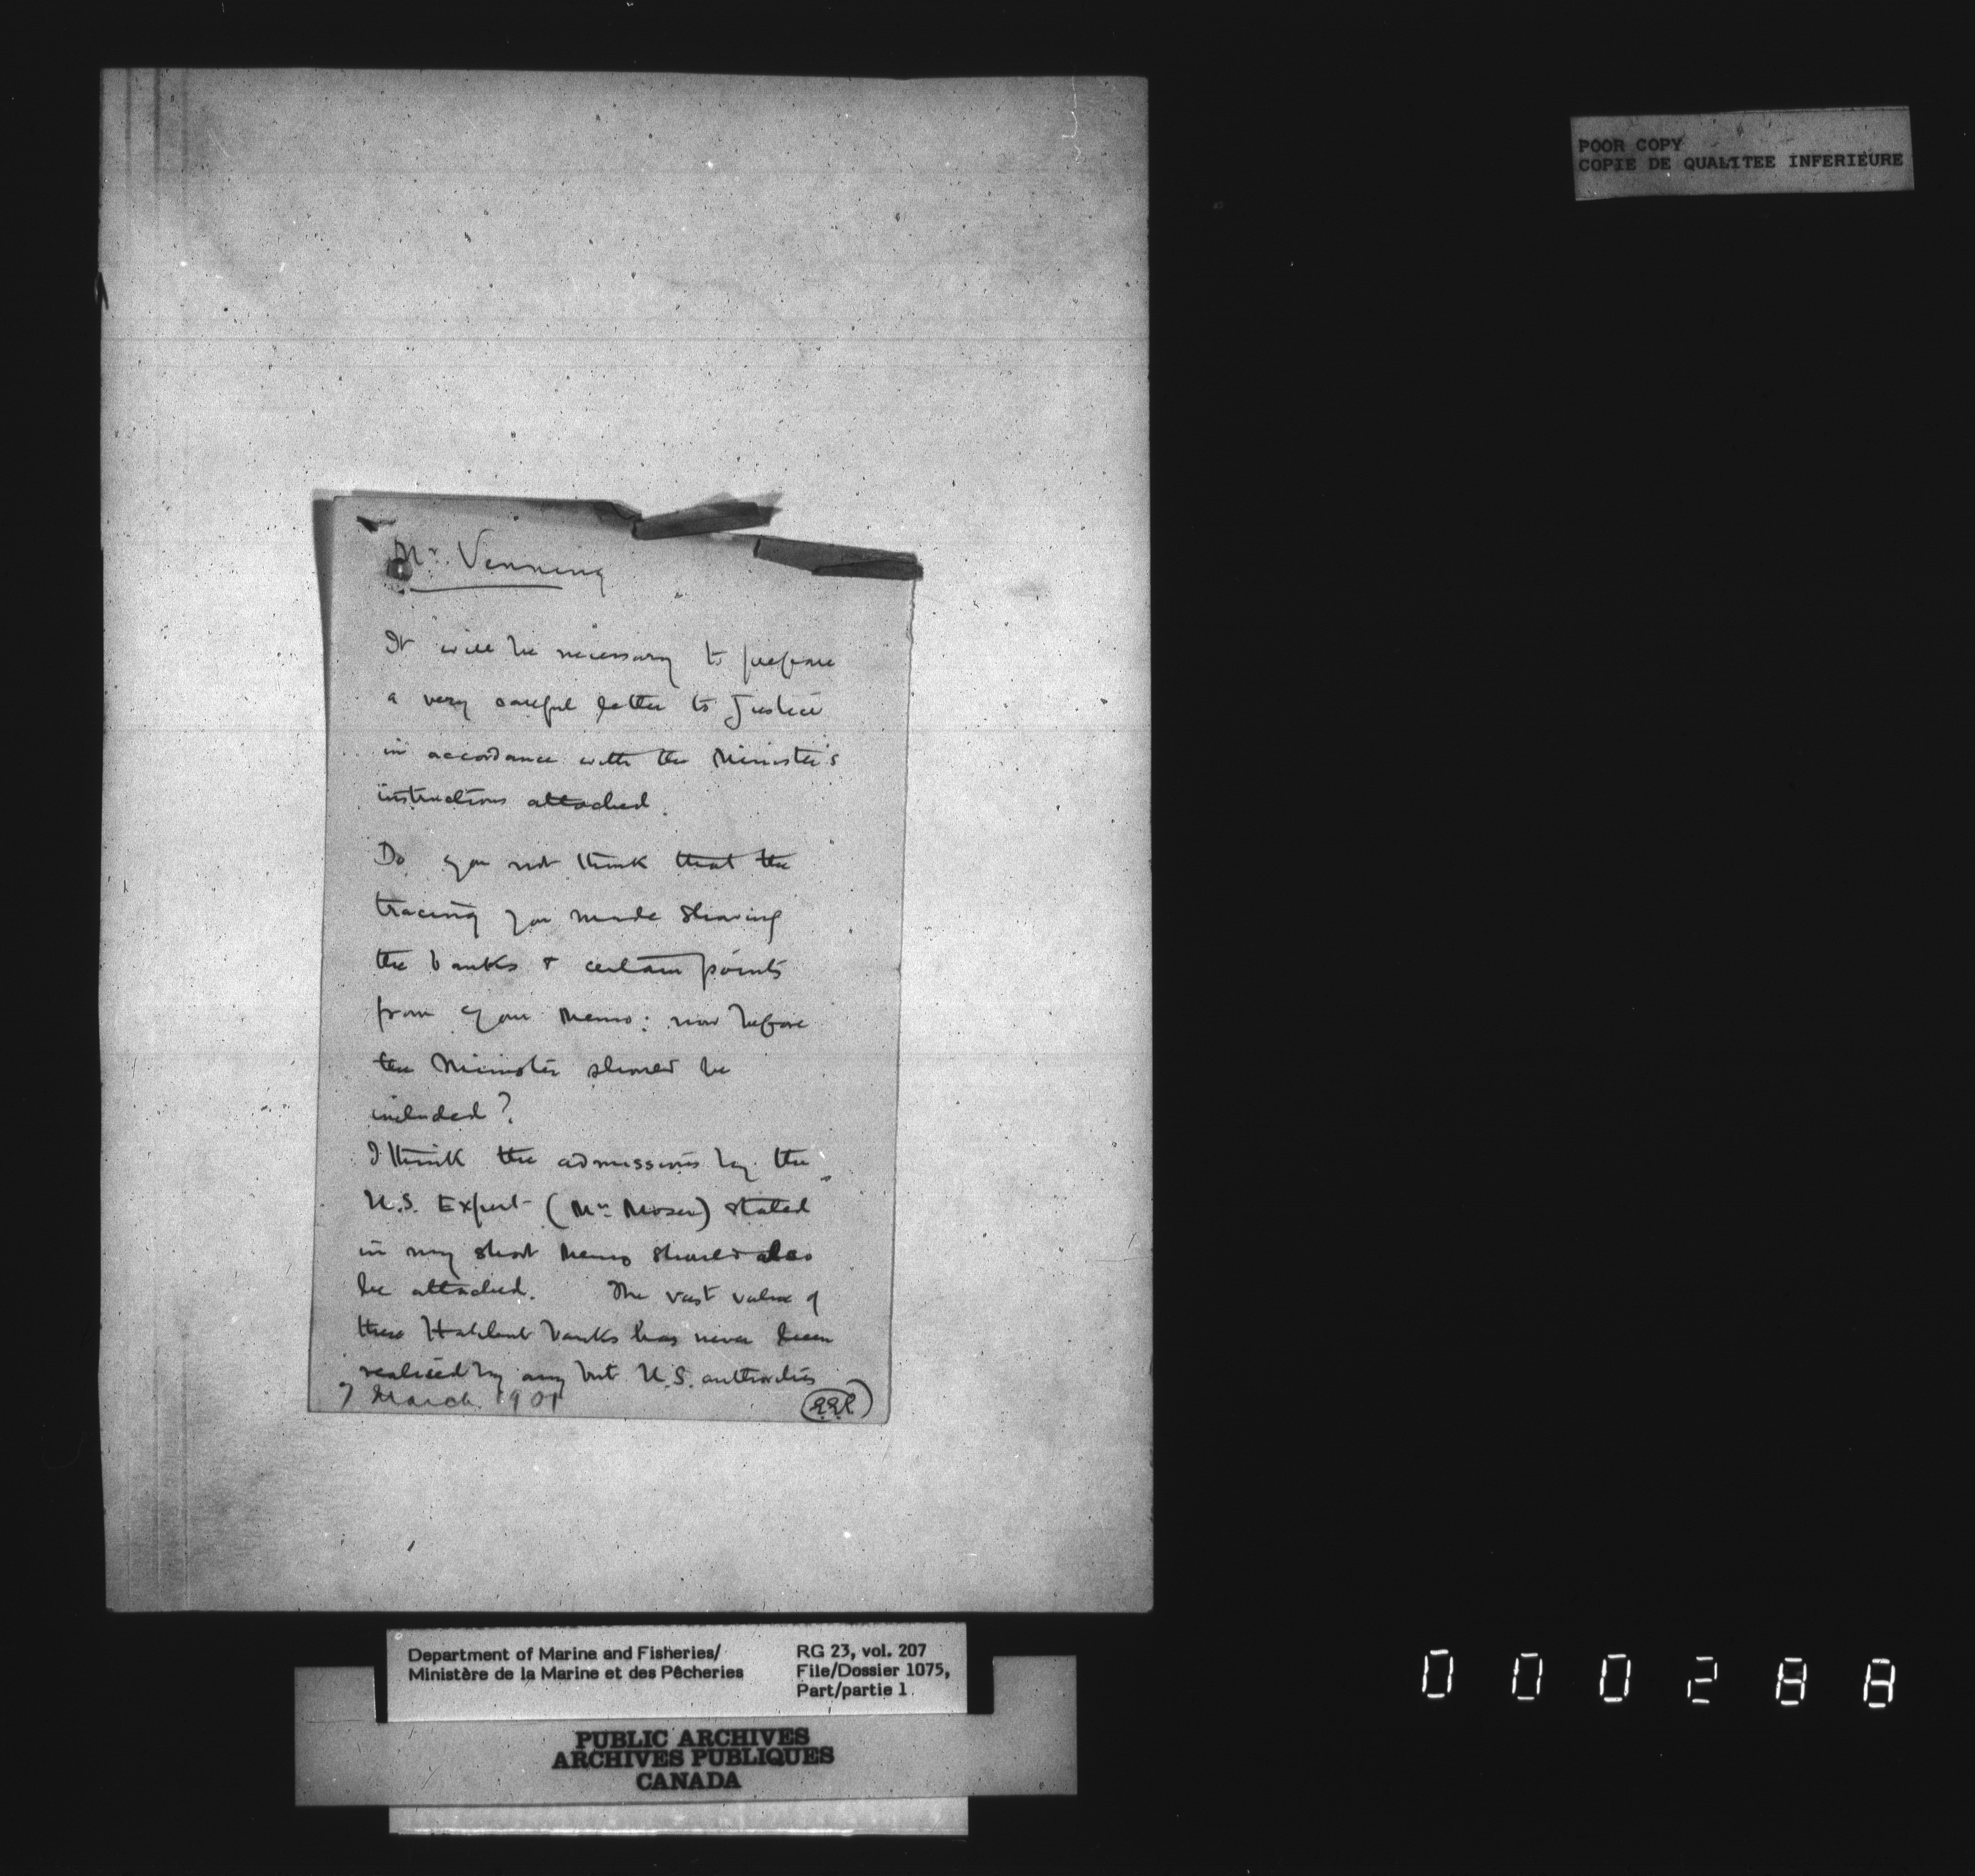 POOR COPY
COPIE DE QUALITEE INFERIEURE
Mr. Venning
It will be necessary to prepare
a very careful letter to Justice
in accordance with the Minister's
instructions attached.
Do you not think that the
tracing you made showing
the banks & certain points
from your Memo: now before
the Minister should be
included?
I think the admissions by the
U.S. Expert (Mr Moser) stated
in my short Memo should also
be attached. The vast value of
these Halibut banks has never been
realised by any but U.S. authorities
7 March 1901
Department of Marine and Fisheries/
Ministère de la Marine et des Pêcheries
RG 23, vol. 207
File/Dossier 1075,
Part/partie 1
PUBLIC ARCHIVES
ARCHIVES PUBLIQUES
CANADA
000288